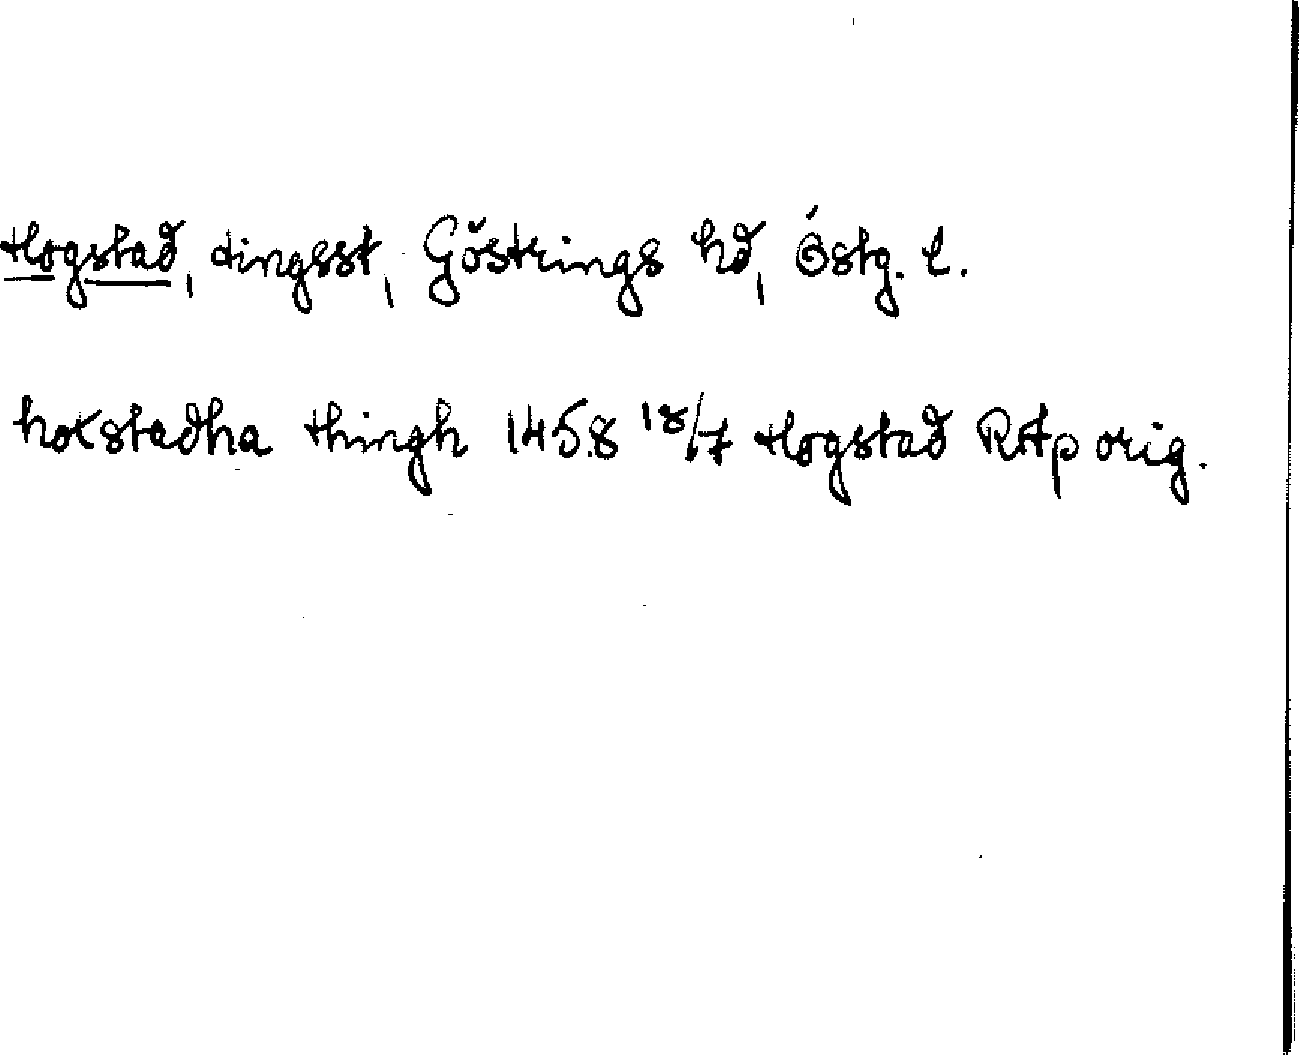 Hogstad, tingsst, Göstrings hd, Östg. l.
hokstadha thingh 1458 18/7 Hogstad RAp orig.